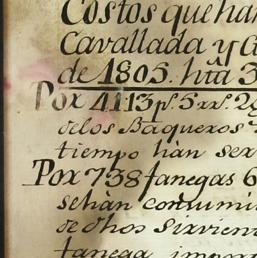 Costos que han
Cavallada y
de 1805. hta 3
Por 4113 ps. 5 rrs. 2
delos Baqueros
tiempo hàn ser
Por 738 fanegas 6
sehàn consumi
de dhos Sirvien
fanega impor